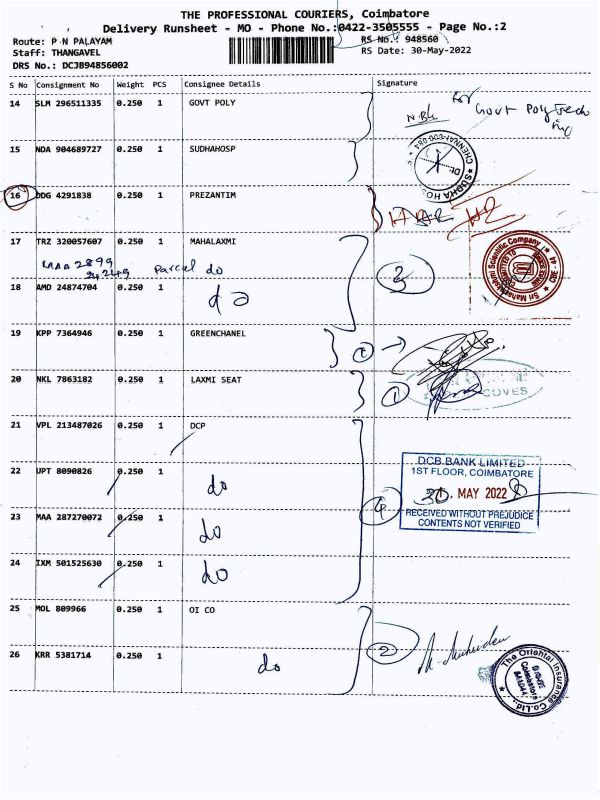 THE PROFESSIONAL COURIERS, Coimbatore
Delivery Runsheet - MO - Phone No.:0422-3505555 - Page No.:2
Route: P N PALAYAM
RS No.: 948560
Staff: THANGAVEL
RS Date: 30-May-2022
DRS No.: DCJB94856002
S No Consignment No Weight PCS Consignee Details Signature
14 SLM 296511335 0.250 1 GOVT POLY
for Govt Polytech
15 NDA 904689727 0.250 1 SUDHAHOSP
SUDHA HOS
16 DDG 4291838 0.250 1 PREZANTIM
17 TRZ 320057607 0.250 1 MAHALAXMI
MAA 2899 Parcel do
3
Sri Mahalakshmi Scientific Company
18 AMD 24874704 0.250 1 do
19 KPP 7364946 0.250 1 GREENCHANEL
20 NKL 7863182 0.250 1 LAXMI SEAT
1
COVES
21 VPL 213487026 0.250 1 DCP
DCB BANK LIMITED
1ST FLOOR, COIMBATORE
22 UPT 8090826 0.250 1 do
4
MAY 2022
RECEIVED WITHOUT PREJUDICE
CONTENTS NOT VERIFIED
23 MAA 287270072 0.250 1 do
24 IXM 501525630 0.250 1 do
25 MOL 809966 0.250 1 OI CO
2
26 KRR 5381714 0.250 1 do
The Oriental Insurance Co.Ltd.
Coimbatore